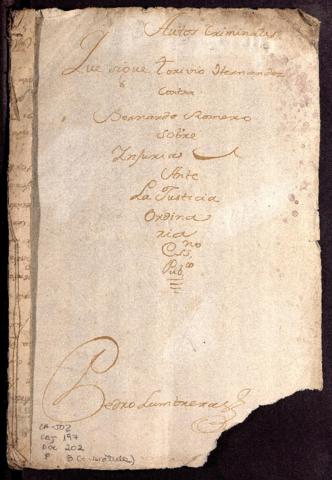 Autos Criminales
Que sigue Torivio Hernandez
Contra
Bernardo Romero
Sobre
Injurias
Ante
La Justicia
Ordina
ria
no
Ess
Pub co
Pedro Lumbreras
CA-JO2
Caj 197
Doc 202
F 8 (+ carátula)